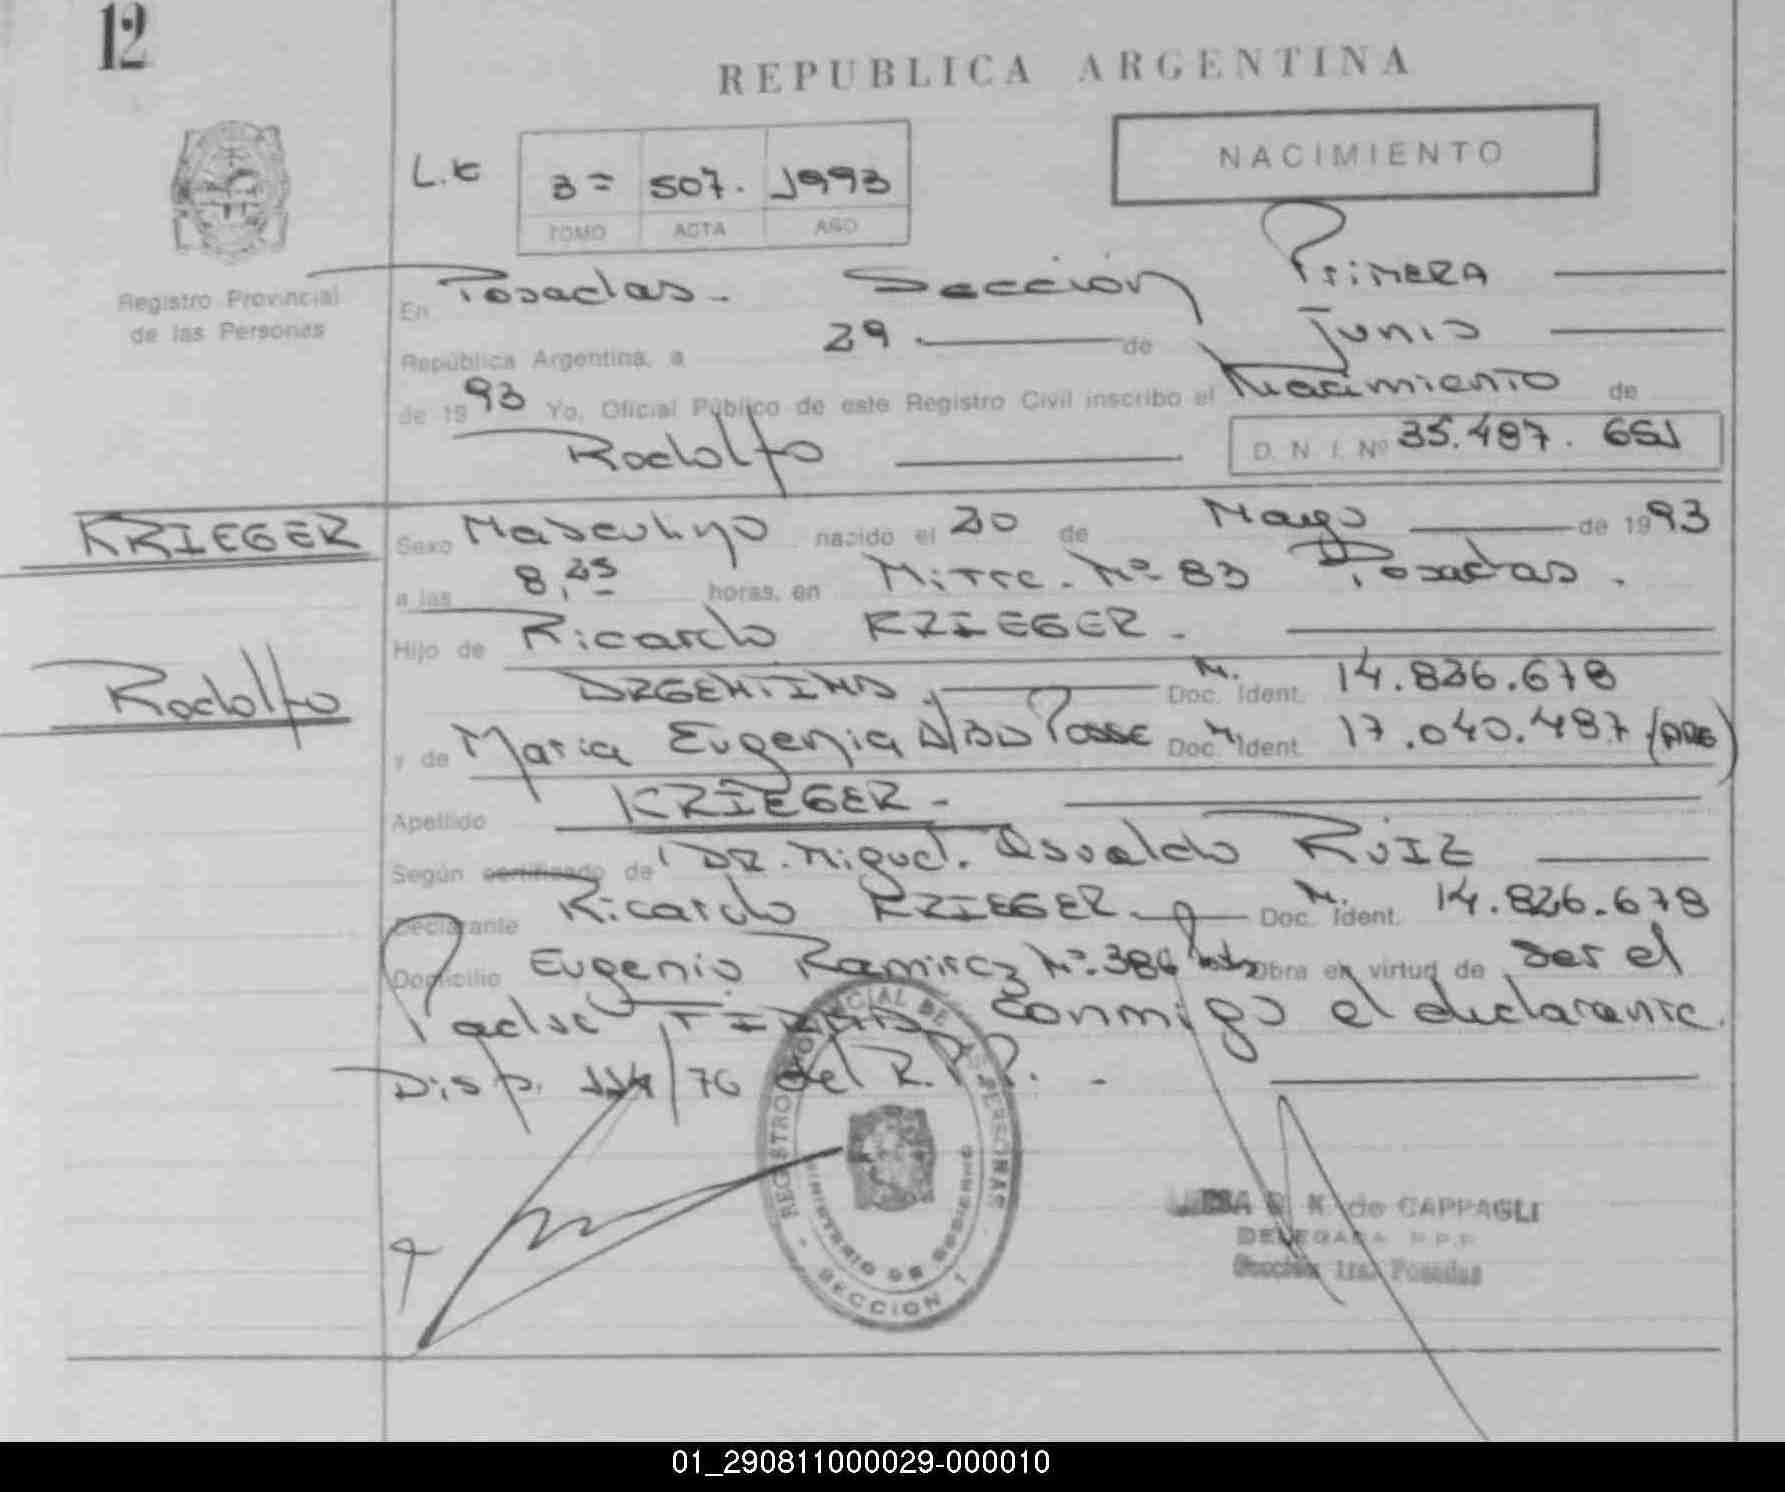 12
REPUBLICA ARGENTINA
NACIMIENTO
L.E 3= 507. 1993
TOMO ACTA AÑO
Registro Provincial
de las Personas
En Posadas. Sección Primera
República Argentina, a 29 de Junio
de 1993 Yo, Oficial Público de este Registro Civil inscribo el Nacimiento de
Rodolfo D. N. I. Nº 35.487. 651
KRIEGER
Sexo Masculino nacido el 30 de Mayo de 1993
a las 8,45 horas, en Mitre. Nº 83 Posadas.
Hijo de Ricardo KRIEGER.
Rodolfo
ARGENTINO, M. Doc. Ident. 14.826.678
y de Maria Eugenia Posse M. Doc. Ident. 17.040.487 (ARG)
Apellido KRIEGER.
Según certificado de DR. Miguel. Osvaldo RUIZ
Declarante Ricardo KRIEGER. M. Doc. Ident. 14.826.678
Domicilio Eugenio Ramirez Nº.386 Obra en virtud de ser el
Padre FIRMA conmigo el declarante.
Disp. 114/76 del R.P.P.
REGISTRO PROVINCIAL DE LAS PERSONAS
MINISTERIO DE GOBIERNO
SECCION 1
K de CAPPAGLI
DELEGADA R.P.P.
Sección 1ra. Posadas
01_290811000029-000010